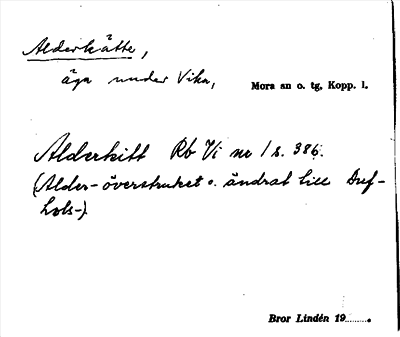 Alderkätte,
äga under Vika,
Mora sn o. tg, Kopp. l.
Alderkitt Rb Vi nr 1 s. 386.
(Alder- överstruket o. ändrat till Duf-
hols-).
Bror Lindén 19........